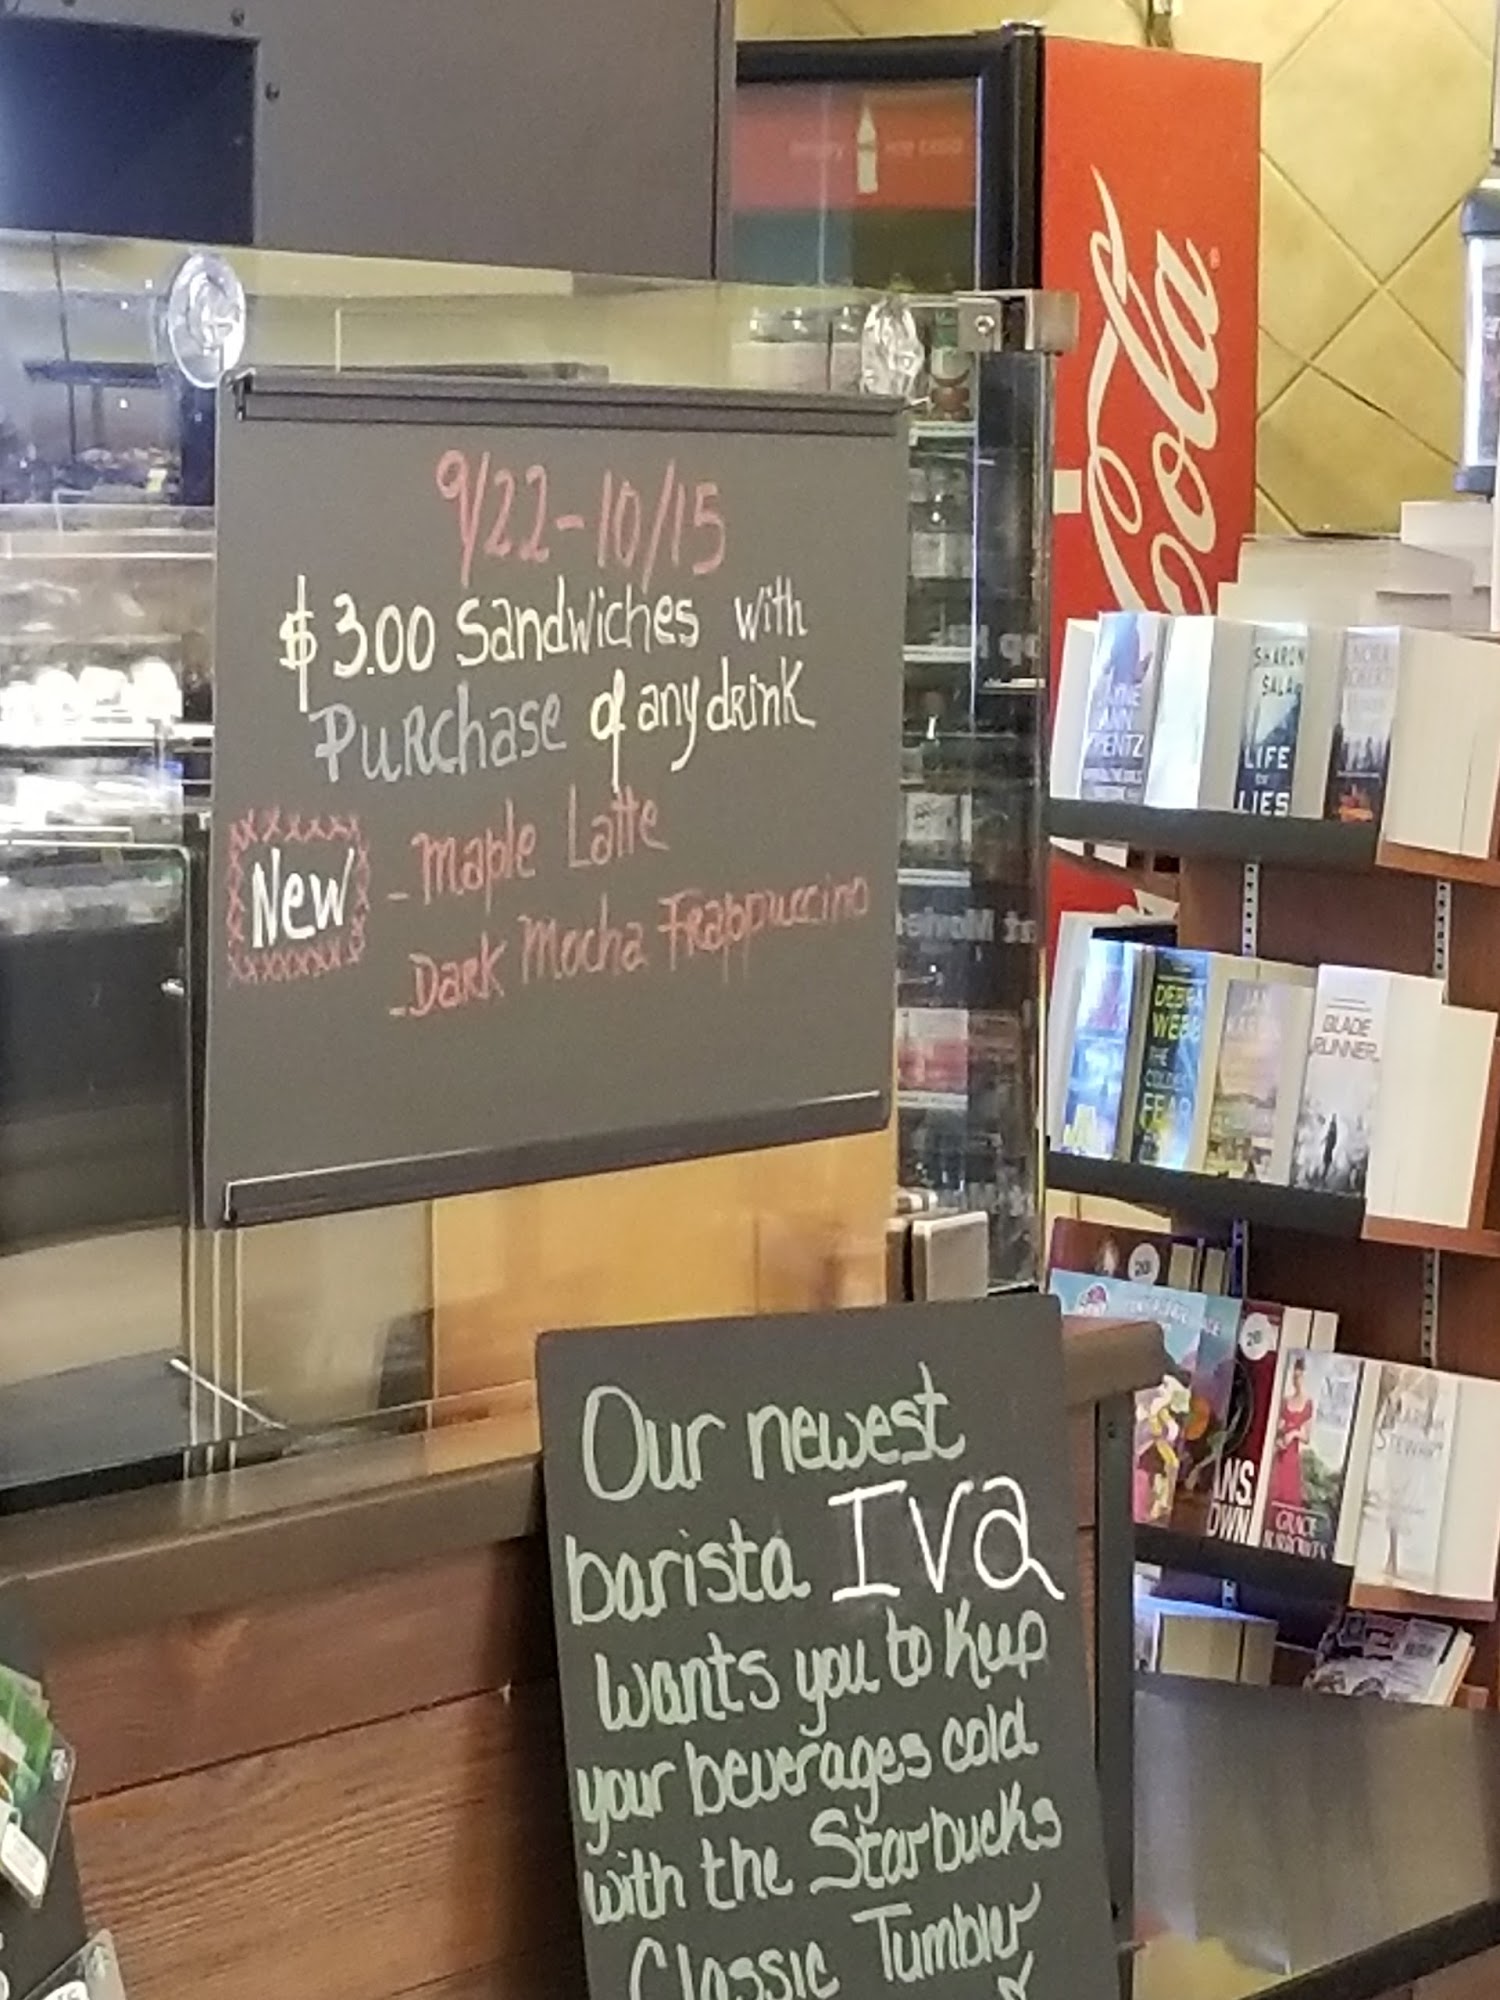 9/22-10/15
$3.00 Sandwiches with
Purchase of any drink
New
- Maple Latte
- Dark Mocha Frappuccino
Our newest
barista Iva
wants you to Keep
your beverages cold
with the Starbucks
Classic Tumbler
Cola
ice cold
JAYNE
ANN
KRENTZ
SHARON
SALA
LIFE
OF
LIES
NORA
ROBERTS
DEBRA
WEBB
THE
COLDEST
FEAR
BLADE
RUNNER
GRACE
BURROWES
MARIAH
STEWART